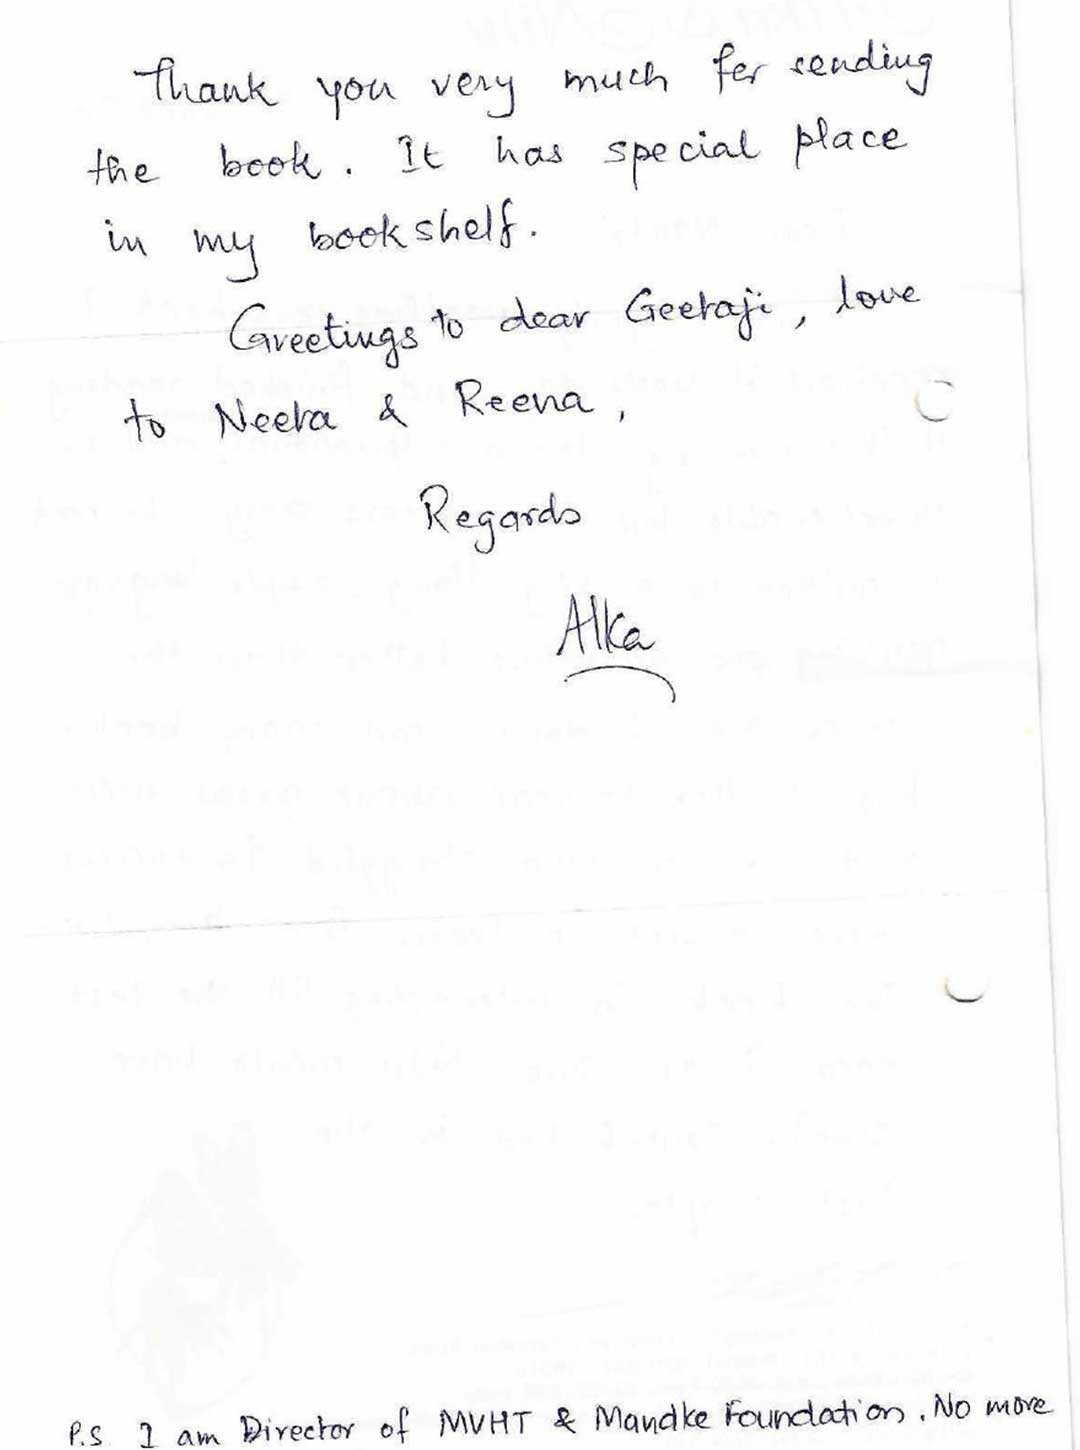 Thank you very much for sending
the book. It has special place
in my bookshelf.
Greetings to dear Geetaji, love
to Neeta & Reena,
Regards
Alka
P.S. I am Director of MVHT & Mandke Foundation. No more